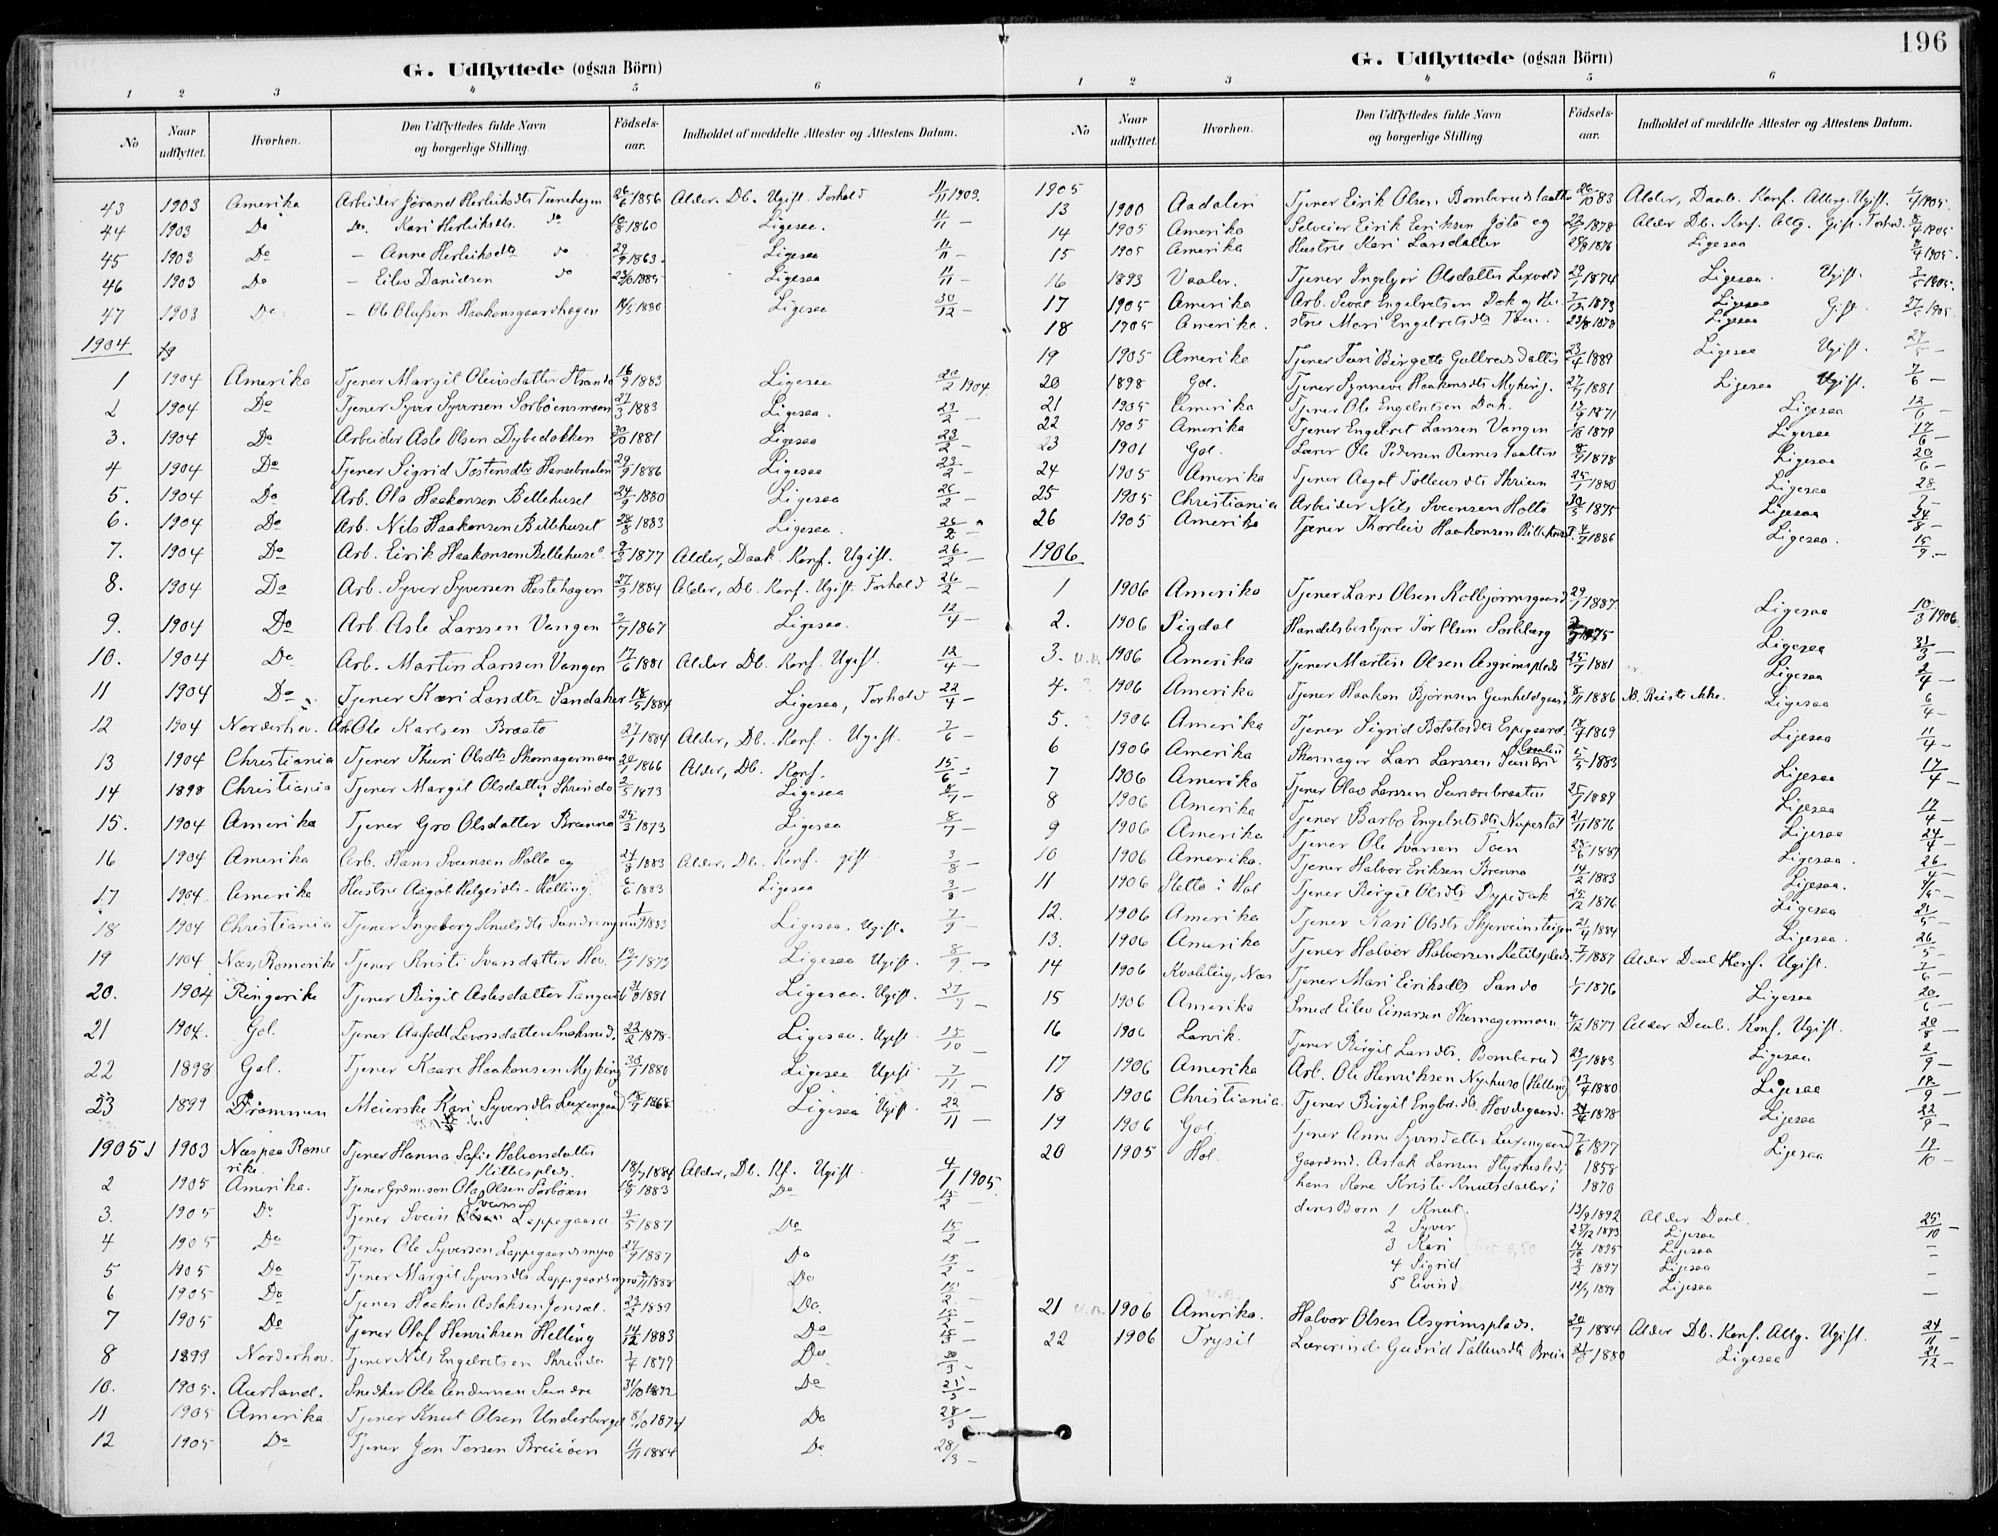 G. Udflyttede (ogsaa Börn)
1 2 3 4 5 6
No Naar udflyttet. Hvorhen. Den Udflyttedes fulde Navn og borgerlige Stilling. Födsels-aar. Indholdet af meddelte Attester og Attestens Datum.
43 1903 Amerika Arbeider Jørand Herleiksdtr Tunehagen 26/6 1856 Alder. Db. Ugift. Forhold 11/11 1903.
44 1903 Do Do. Kari Herleiksdtr. do 10/8 1860 Ligesaa. 11/11 –
45 1903 Do – Anne Herleiksdtr do 29/9 1863. Ligesaa 11/11 –
46 1903 Do – Eilev Danielsen do 1885 Ligesaa 11/11 –
47 1903 Do – Ole Olufsen Haakonsgaardhagen 14/5 1880 Ligesaa 30/12 –
1904
1 1904 Amerika Tjener Margit Oleivsdatter Strando 16/9 1883 Ligesaa 1904.
2 1904 Do Tjener Syver Syversen Sorbøensmoen 27/3 1883 Ligesaa. 23/2 –
3. 1904 Do Arbeider Asle Olsen Dybedokken 30/10 1881 Ligesaa 23/2 –
4 1904 Do Tjener Sigrid Tostensdtr Hansebraaten 29/9 1886 Ligesaa 23/2 –
5. 1904 Do Arb. Ola Haakonsen Bellehuset 24/9 1880 Ligesaa 26/2 –
6. 1904 Do Arb. Nils Haakonsen Bellehuset 1883 Ligesaa. 26/2 –
7. 1904 Do Arb. Eirik Haakonsen Bellehuset 9/3 1877 Alder, Daab. Konf. Ugift. 26/2 –
8. 1904 Do Arb. Syver Syversen Hestehagen 27/9 1884 Alder, Db. Konf. Ugift. Forhold 26/2 –
9. 1904 Do Arb. Asle Larssen Vangen 1867 Ligesaa. 12/4 –
10. 1904 Do Arb. Martin Larssen Vangen 17/6 1881 Alder Db. Konf. Ugift. 12/4 –
11 1904 Do Tjener Kari Larsdtr Sandaker 18/5 1884 Ligesaa, Forhold 22/4 –
12 1904 Norderhov. Arb. Ole Karlsen Braato 27/1 1884 Alder, Db. Konf. Ugift. 2/6 –
13 1904 Christiania Tjener Thuri Olsdtr Skomagermoen 1866 Alder, Db. Konf. 15/6 –
14 1898 Christiania Tjener Margit Olsdatter Skrindo 2/5 1873 Ligesaa –
15. 1904 Amerika Tjener Gro Olsdatter Brenno 25/3 1873 Ligesaa 8/7 –
16 1904 Amerika Arb. Hans Svensen Holto og 27/8 1883 Alder, Db. Konf. gift 3/8 –
17 1904 Amerika Hustru Aagot Helgesdtr Helling. 6/6 1883 Ligesaa 3/8 –
18 1904 Christiania Tjener Ingeborg Knutsdtr 1883 Ligesaa. Ugift. 7/9 –
19 1904 Næs, Romerike Tjener Kristi Ivarsdatter Hov. 1873 Ligesaa Ugift. 8/9 –
20. 1904 Ringerike Tjener Birgit Aslesdatter 1881 Ligesaa. Ugift. –
21 1904. Gol. Tjener Aagodt Levorsdatter 22/2 1878. Ligesaa. Ugift. 15/10 –
22 1898 Gol. Tjener Kaare Haakonsen Myking 30/7 1880 Ligesaa Ugift 7/11 –
23 1899 Drammen Meierske Kari Syversdtr Luxengaard 18/7 1868 Ligesaa Ugift 22/11 –
1905 1 1903 Næs paa Romerike Tjener Hanna Sofie Halvorsdatter Kittilsplas. 18/7 1884 Alder, Db. Kf. Ugift 4/1 1905.
2 1905 Amerika. Tjener Ola Olsen Sorbøen 16/9 1883 Do 15/2
3. 1905 Do Tjener Svein Sveinsen Lappegaard 9/5 1887 Do 15/2 –
4 1905 Do Tjener Ole Syversen Lappegaardsmyro 27/9 1887 Do 15/2 –
5 1905 Do Tjener Margit Syversdtr Lappegaardsmyro 1888 Do 15/2 –
6 1905 Do Tjener Haakon Aslaksen 23/2 1889 Do. 15/2 –
7 1905 Do Tjener Olaf Henriksen Helling 14/12 1883 Do –
8 1899 Norderhov. Tjener Nils Engebretsen Skrindo 1/4 1877 Do 20/3 –
10. 1905. Aurland. Snedker Ole Andersen Sundre 31/10 1872 Do 25/3 –
11 1905 Amerika Tjener Knut Olsen Underberget 8/10 1874 Do 28/3 –
12 1905 Do Tjener Jon Torsen Breieøen 11/11 1884 Do 28/3 –
196
G. Udflyttede (ogsaa Börn)
1 2 3 4 5 6
No Naar udflyttet. Hvorhen. Den Udflyttedes fulde Navn og borgerlige Stilling Födsels-aar. Indholdet af meddelte Attester og Attestens Datum.
1905
13 1900 Aadalen Tjener Eirik Olsen 26/10 83 Alder, Daab. Konf. Altg. Ugift. 1/4 1905.
14 1905 Amerika Selveier Eirik Eiriksen Jøto og 22/7 1878 Alder Db. Konf. Altg. Gift. Forhold. 8/4 1905.
15 1905 Amerika Hustru Kari Larsdatter 1876 Ligesaa 8/4 1905.
16 1893 Vaaler. Tjener Ingebjør Olsdatter 29/1 1874 Ligesaa Ugift. 3/5 1905.
17 1905 Amerika Arb. Sevat Engebretsen Dok og Hu- 1873 Ligesaa Gift. 27/5 1905
18 1905 Amerika. stru Mari Engebretsdtr Toen. 23/8 1878 Ligesaa
19 1905 Amerika Tjener Turi Birgette Gulbrandsdatter 23/4 1889 Ligesaa Ugift. 27/5 –
20 1898 Gol. Tjener Synneve Haakonsdtr Myking. 27/7 1881 Ligesaa Ugift. 7/6 –
21 1905 Amerika Tjener Ole Engebretsen Dok. 1871 Ligesaa 12/6 –
22 1905 Amerika Tjener Engebret Larssen Vangen 1/10 1879 Ligesaa 17/6 –
23 1901 Gol. Lærer Ole Pedersen 8/9 1878 Ligesaa 20/6 –
24 1905 Amerika Tjener Aagot Tolleivsdtr Skrium 25/7 1880 Ligesaa 28/7 –
25 1905 Christiania Arbeider Nils Sveensen Holto 30/5 1875 Ligesaa 24/8 –
26 1905 Amerika Tjener Torleiv Haakonsen Billehuset. 4/2 1886 Ligesaa. 15/9 –
1906
1 1906 Amerika Tjener Lars Olsen Kolbjørnsgaard 29/1 1887. Ligesaa 10/3 1906.
2. 1906 Sigdal Handelsbestyrer Tor Olsen 1875 Ligesaa 31/3 –
3. U.A. 1906 Amerika Tjener Martin Olsen Asgrimsplads 25/7 1881 Ligesaa 2/4 –
4. 1906 Amerika Tjener Haakon Bjørnsen Gunhildgaard 8/11 1886 NB. Reiste ikke. Ligesaa 6/4 –
5. 1906 Amerika Tjener Sigrid Botolvsdtr Espegaard 1869 Ligesaa 11/4 –
6 1906 Amerika Skomager Lars Larssen Sundre 5/5 1883 Ligesaa 17/4 –
7 1906 Amerika Tjener Olav Larssen Sundrebraaten 25/7 1889 Ligesaa 17/4 –
8 1906 Amerika Tjener Barbo Engebretsdtr Nupestol 21/11 1876 Ligesaa 24/4 –
9 1906 Amerika Tjener Ole Ivarsen Toen 28/6 1887 Ligesaa. 26/4 –
10 1906 Amerika. Tjener Halvor Eriksen Brenno 14/2 1883 Ligesaa. –
11 1906 Sletto i Hol Tjener Birgit Olsdtr Dypedok 25/12 1876 Ligesaa 21/5 –
12. 1906 Amerika Tjener Kari Olsdtr Skjerveimsteigen 21/4 1884 Ligesaa. 26/5 –
13. 1906 Amerika Tjener Halvor Halvorsen Ketilsplads. 7/7 1887 Alder Daab Konf. Ugift. 7/6 –
14 1906 Kvahleiq, Næs Tjener Mari Eiriksdtr Sando 1/7 1876 Ligesaa 20/6 –
15 1906 Amerika Smed Eilev Einarsen Skomagermoen. 4/12 1877 Alder Daab. Konf. Ugift. 20/8 –
16 1906 Larvik. Tjener Birgit Larsdtr. 23/7 1883 Ligesaa 2/9 –
17 1906 Amerika Arb. Ole Henriksen Nyhuso (Helling) 13/4 1880 Ligesaa 18/9 –
18 1906 Christiania. Tjener Birgit Engbr.dtr Hovdegaard. 1878 Ligesaa 22/9 –
19 1906 Gol. Tjener Anne Syversdatter Luxengaard 7/6 1877 Ligesaa 18/10 –
20 1905 Hol. Gaardmd. Aslak Larssen Styrkesteds 1858
hans Kone Kristi Knutsdatter: 1870
deres Born 1 Knut 13/9 1892 Alder Daab. 25/10 –
2 Syver 25/12 1893 Ligesaa –
3 Kari 14/10 1895 Ligesaa –
4 Sigrid 9/2 1897 Ligesaa –
5 Eivind 19/9 1899 Ligesaa –
21 U.A. 1906 Amerika. Halvor Olsen Asgrimsplads. 20/7 1884 Alder Db. Konf. Altg. Ugift. 24/11 –
22 1906 Trysil Lærerind. Gudrid Tolleivsdtr Breie 1880 Ligesaa 21/12 –